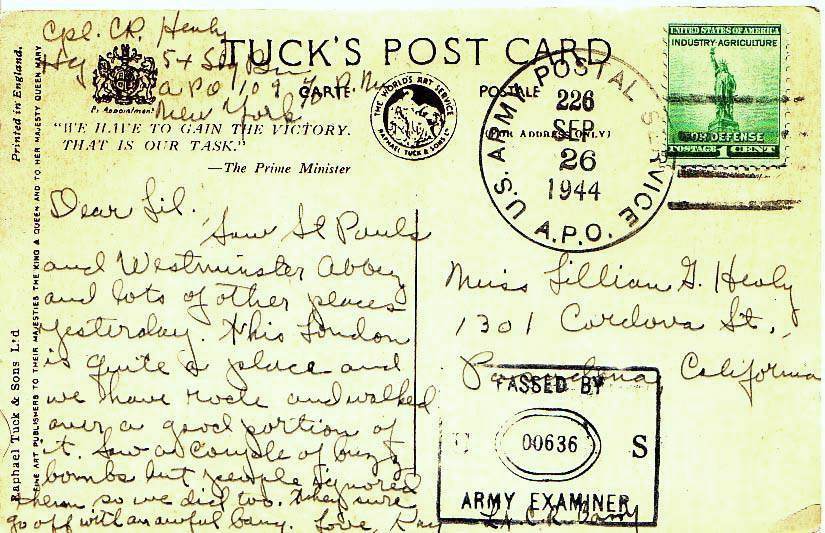 Cpl. C.R. Healy
TUCK'S POST CARD
Hq
A.P.O. 109 % P.M.
New York
By Appointment
CARTE
POSTALE
THE WORLD'S ART SERVICE
RAPHAEL TUCK & SONS LTD
(FOR ADDRESS ONLY)
"WE HAVE TO GAIN THE VICTORY.
THAT IS OUR TASK."
—The Prime Minister
U.S. ARMY POSTAL SERVICE
226
SEP
26
1944
A.P.O.
UNITED STATES OF AMERICA
INDUSTRY-AGRICULTURE
FOR DEFENSE
POSTAGE 1 CENT
Printed in England.
Raphael Tuck & Sons Ltd
FINE ART PUBLISHERS TO THEIR MAJESTIES THE KING & QUEEN AND TO HER MAJESTY QUEEN MARY
Dear Lil,
Saw St Pauls
and Westminster Abbey
and lots of other places
yesterday. This London
is quite a place and
we have rode and walked
over a good portion of
it. Saw a couple of buzz
bombs but people ignored
them so we did too. They sure
go off with an awful bang. Love, Ray
Miss Lillian G. Healy
1301 Cordova St.,
Pasadena, California
PASSED BY
U 00636 S
ARMY EXAMINER
Lt C.R.